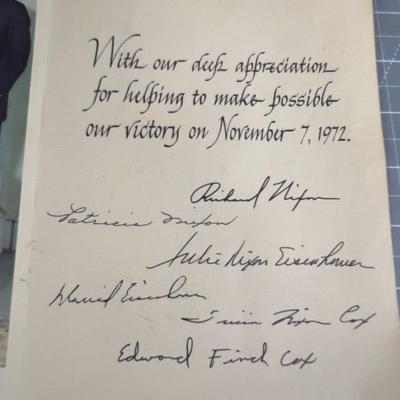 With our deep appreciation
for helping to make possible
our victory on November 7, 1972.
Richard Nixon
Patricia Nixon
Julie Nixon Eisenhower
David Eisenhower
Tricia Nixon Cox
Edward Finch Cox